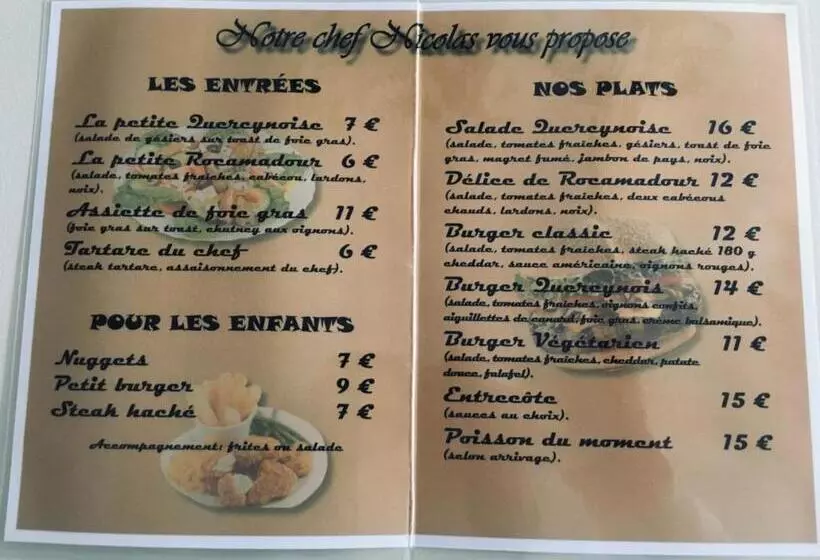 Notre chef Nicolas vous propose
LES ENTRÉES
La petite Quercynoise 7 €
(salade de gésiers sur toast de foie gras).
La petite Rocamadour 6 €
(salade, tomates fraîches, cabécou, lardons,
noix).
Assiette de foie gras 11 €
(foie gras sur toast, chutney aux oignons).
Tartare du chef 6 €
(steak tartare, assaisonnement du chef).
POUR LES ENFANTS
Nuggets 7 €
Petit burger 9 €
Steak haché 7 €
Accompagnement: frites ou salade
NOS PLATS
Salade Quercynoise 16 €
(salade, tomates fraîches, gésiers, toast de foie
gras, magret fumé, jambon de pays, noix).
Délice de Rocamadour 12 €
(salade, tomates fraîches, deux cabécous
chauds, lardons, noix).
Burger classic 12 €
(salade, tomates fraîches, steak haché 180 g
cheddar, sauce américaine, oignons rouges).
Burger Quercynois 14 €
(salade, tomates fraîches, oignons confits,
aiguillettes de canard, foie gras, crème balsamique).
Burger Végétarien 11 €
(salade, tomates fraîches, cheddar, patate
douce, falafel).
Entrecôte 15 €
(sauces au choix).
Poisson du moment 15 €
(selon arrivage).